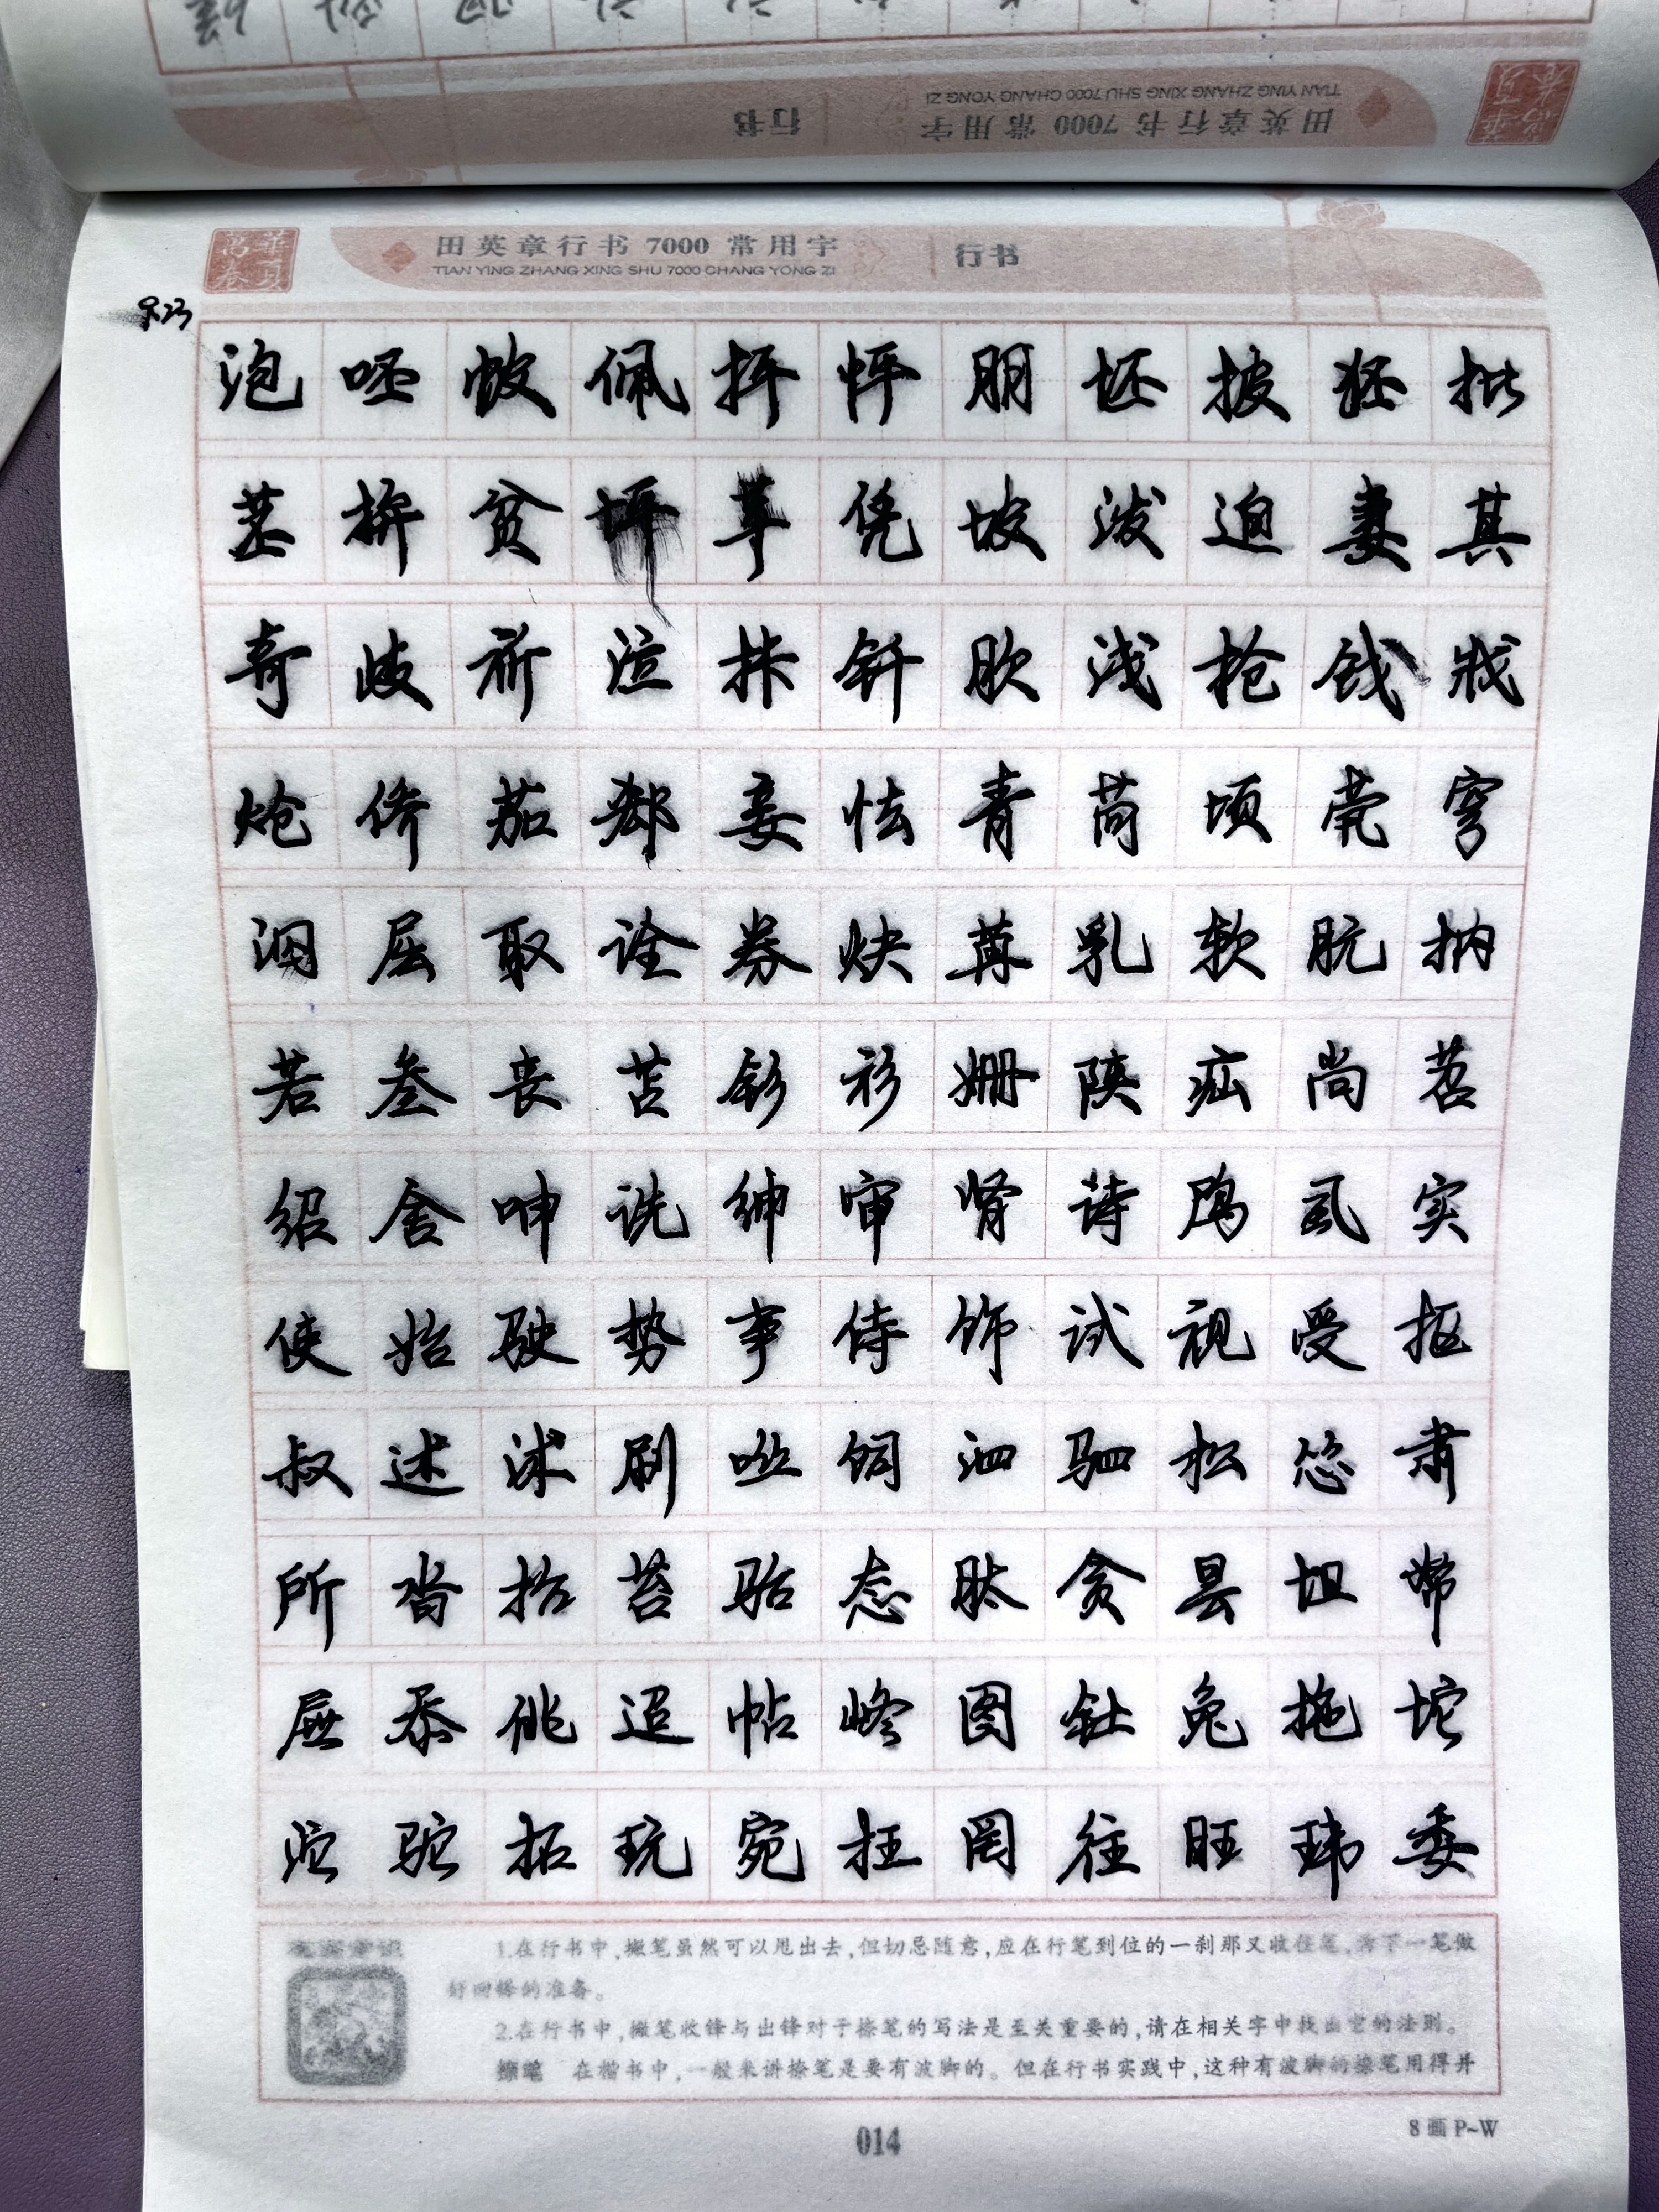 田英章行书 7000 常用字
TIAN YING ZHANG XING SHU 7000 CHANG YONG ZI
行书
田英章行书 7000 常用字
TIAN YING ZHANG XING SHU 7000 CHANG YONG ZI
行书
泡 呸 帔 佩 抨 怦 朋 坯 披 狉 批
苤 拚 贫 坪 苹 凭 坡 泼 迫 妻 其
奇 歧 祈 泣 抹 钎 肷 浅 抢 钱 戕
炝 侨 茄 郄 妾 怯 青 苘 顷 茕 穹
泅 屈 取 诠 券 炔 苒 乳 软 肮 抐
若 叁 丧 苫 钐 衫 姗 陕 疝 尚 苕
绍 舍 呻 诜 绅 审 肾 诗 鸤 虱 实
使 始 驶 势 事 侍 饰 试 视 受 抠
叔 述 沭 刷 咝 饲 泗 驷 松 怂 肃
所 沓 抬 苔 骀 态 肽 贪 昙 坦 帑
屉 忝 佻 迢 帖 图 钍 兔 拖 坨
沱 驼 拓 玩 宛 抂 罔 往 旺 玮 委
1.在行书中,撇笔虽然可以甩出去,但切忌随意,应在行笔到位的一刹那又收住笔,为下一笔做
好回锋的准备。
2.在行书中,撇笔收锋与出锋对于捺笔的写法是至关重要的,请在相关字中找出它的法则。
捺笔 在楷书中,一般来讲捺笔是要有波脚的。但在行书实践中,这种有波脚的捺笔用得并
014
8画 P~W